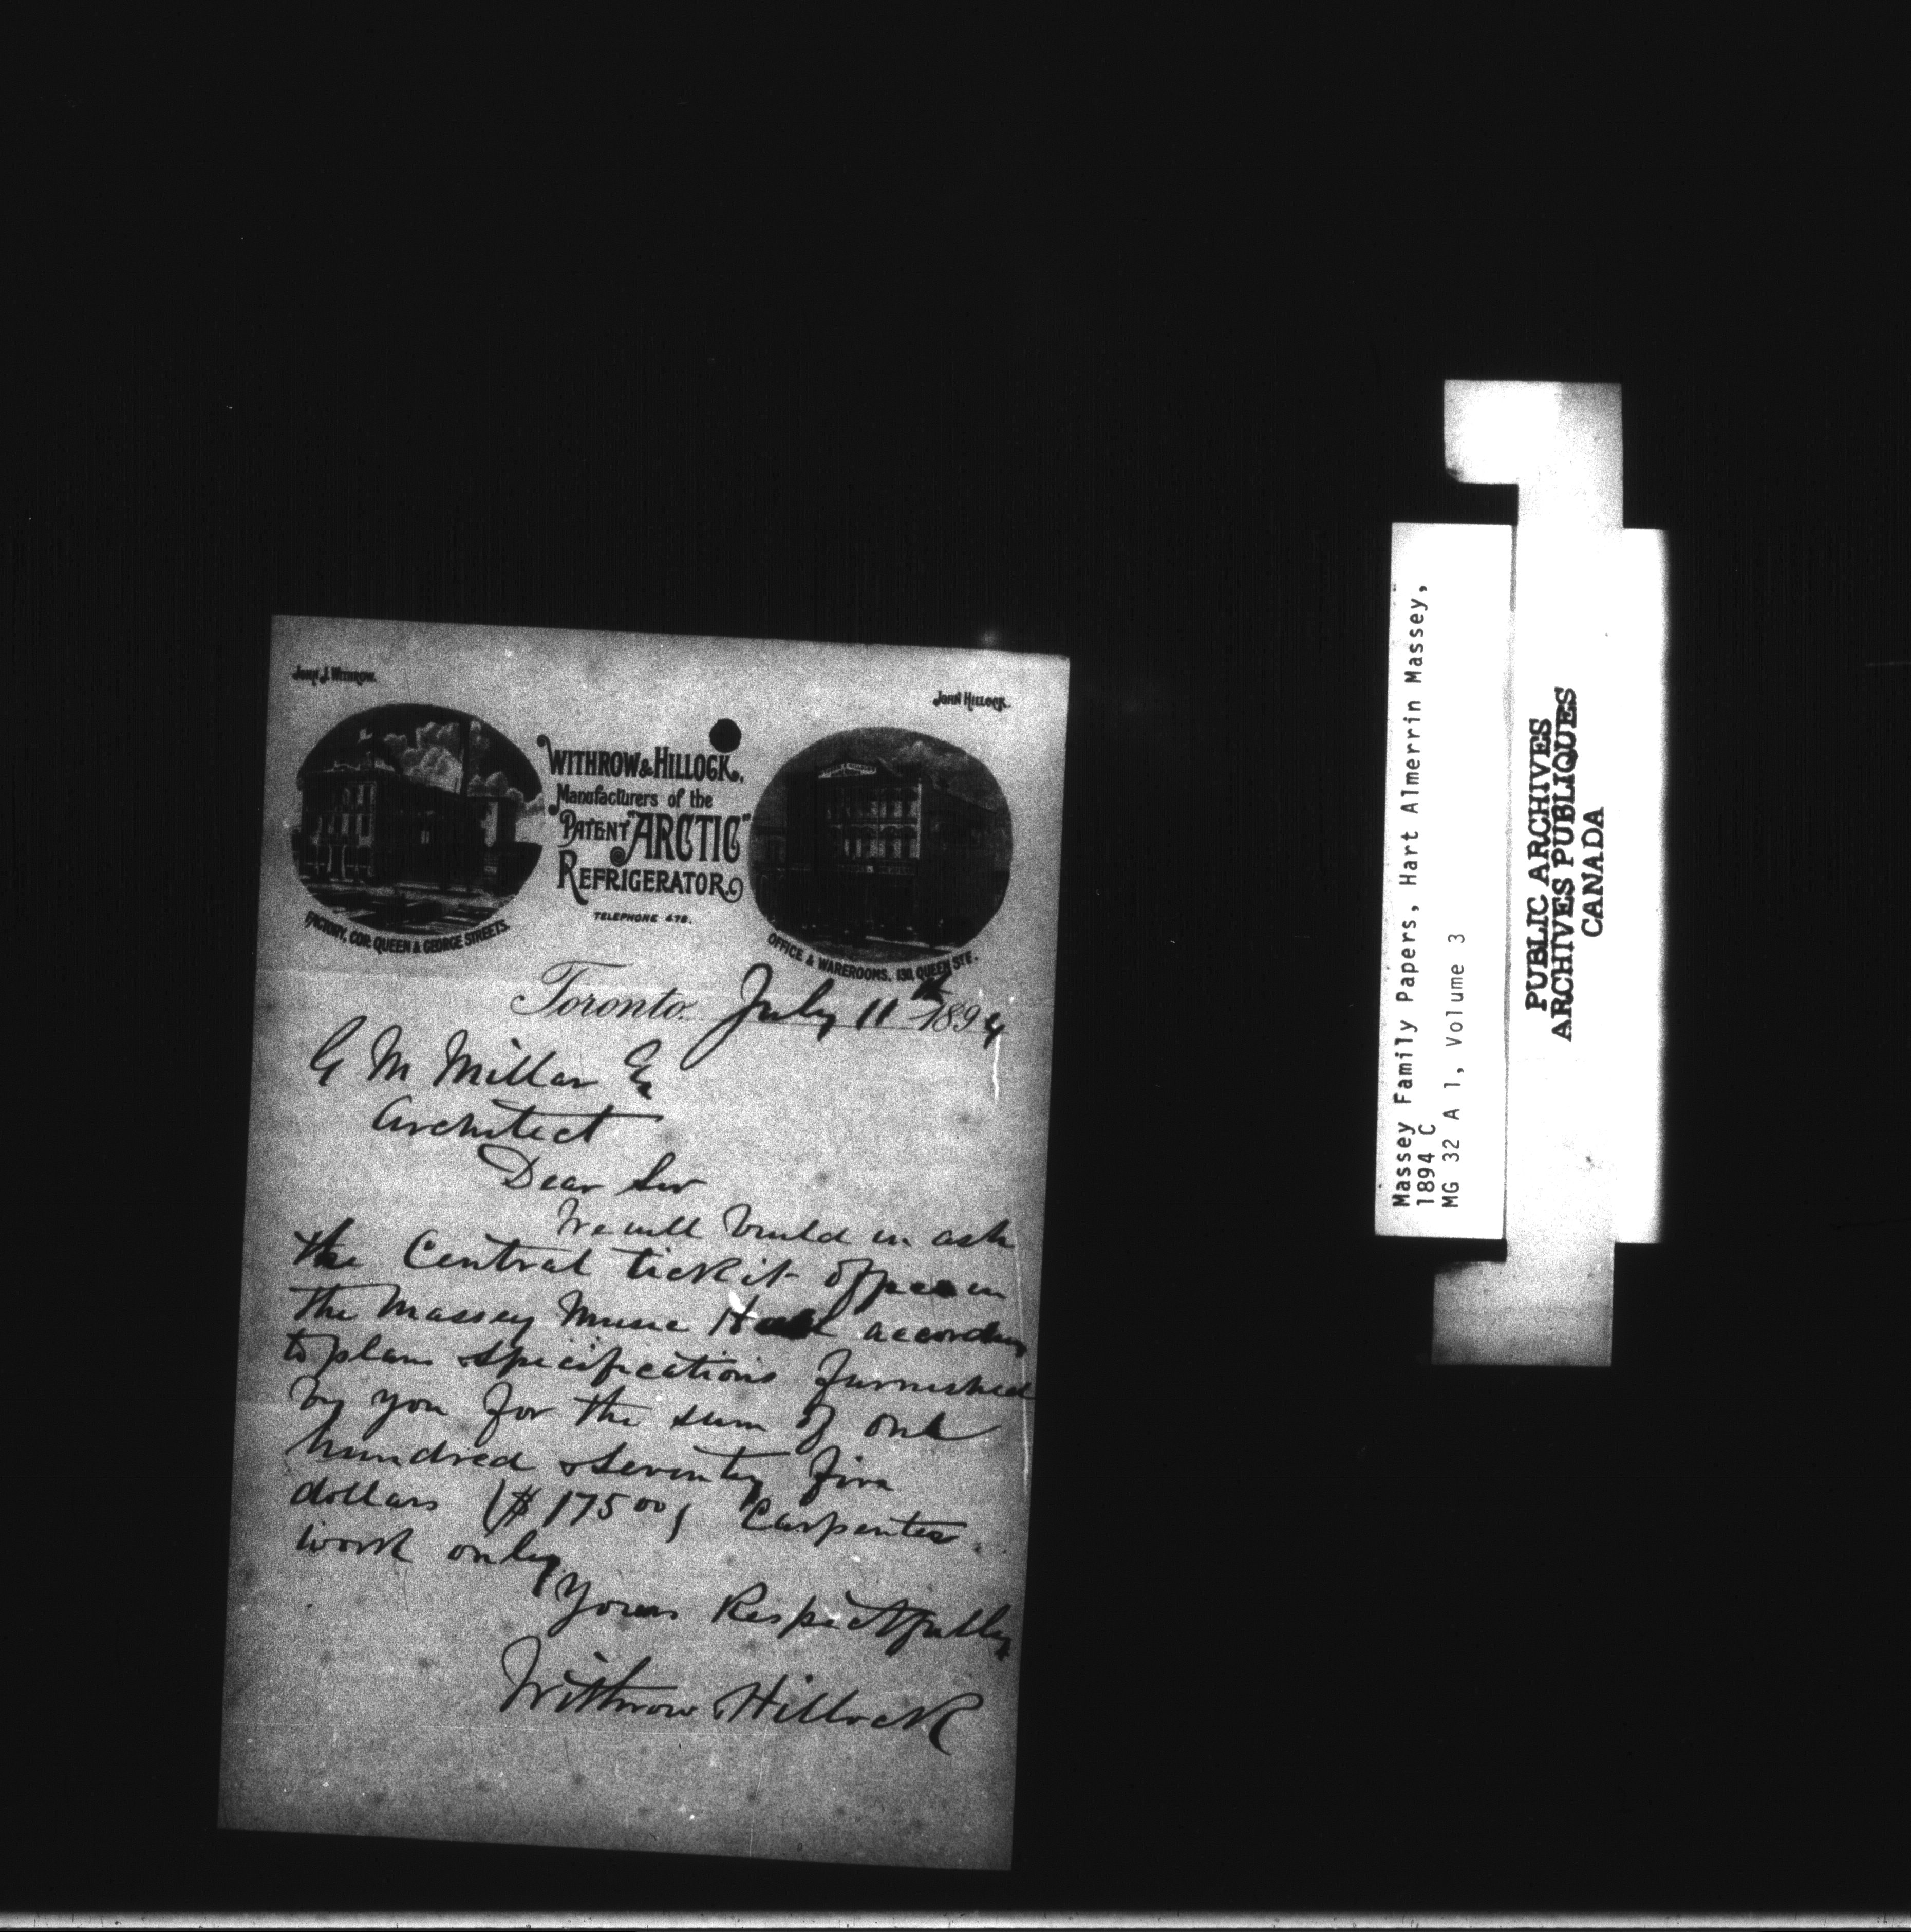 John J. Withrow.
John Hillock.
WITHROW & HILLOCK.
Manufacturers of the
PATENT "ARCTIC"
REFRIGERATOR
TELEPHONE 478.
FACTORY, COR. QUEEN & GEORGE STREETS.
OFFICE & WAREROOMS, 130, QUEEN ST E.
Toronto. July 11th 1894
G M Millar Es
Architect
Dear Sir
We will build in ash
the Central tickit office in
the Massey Music Hall according
to plans & specifications furnished
by you for the sum of one
hundred & seventy five
dollars ($17500) Carpenter
work only
Yours Respectfully
Withrow & Hillock
Massey Family Papers, Hart Almerrin Massey,
1894 C
MG 32 A 1, Volume 3
PUBLIC ARCHIVES
ARCHIVES PUBLIQUES
CANADA